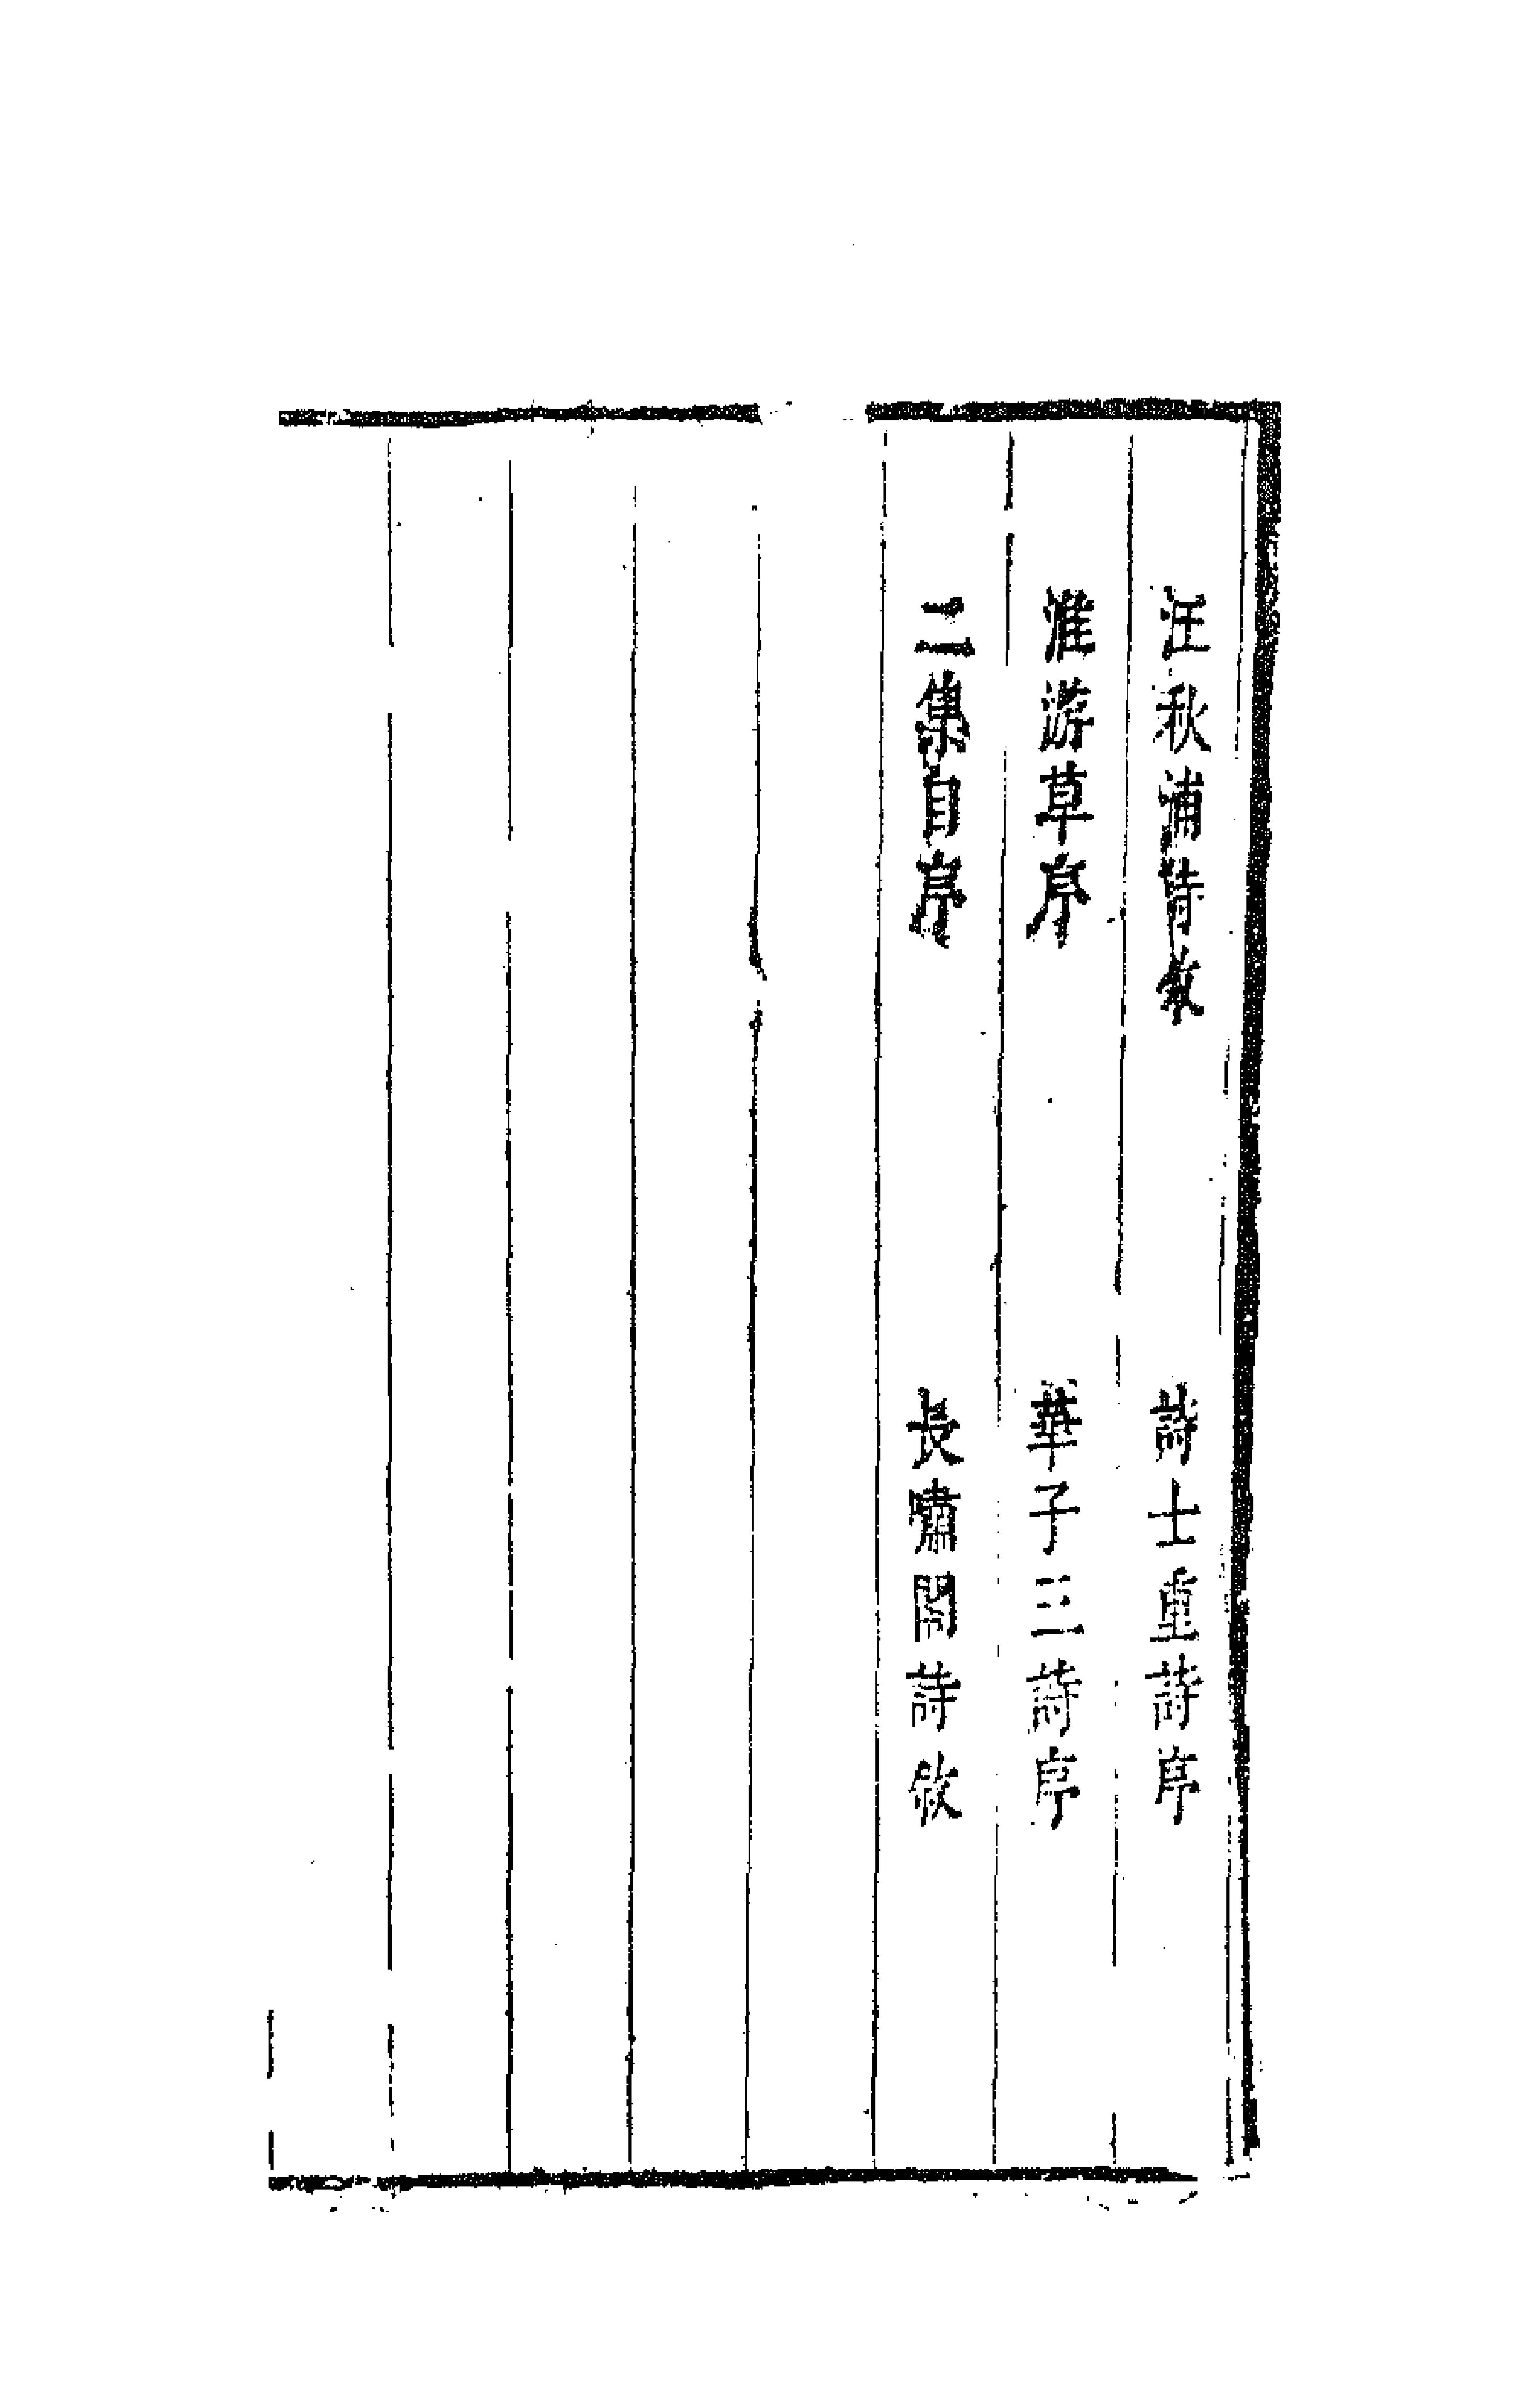 汪秋浦詩敘　詩士重詩序
淮游草序　華子三詩序
二集自序　長嘯閣詩敘